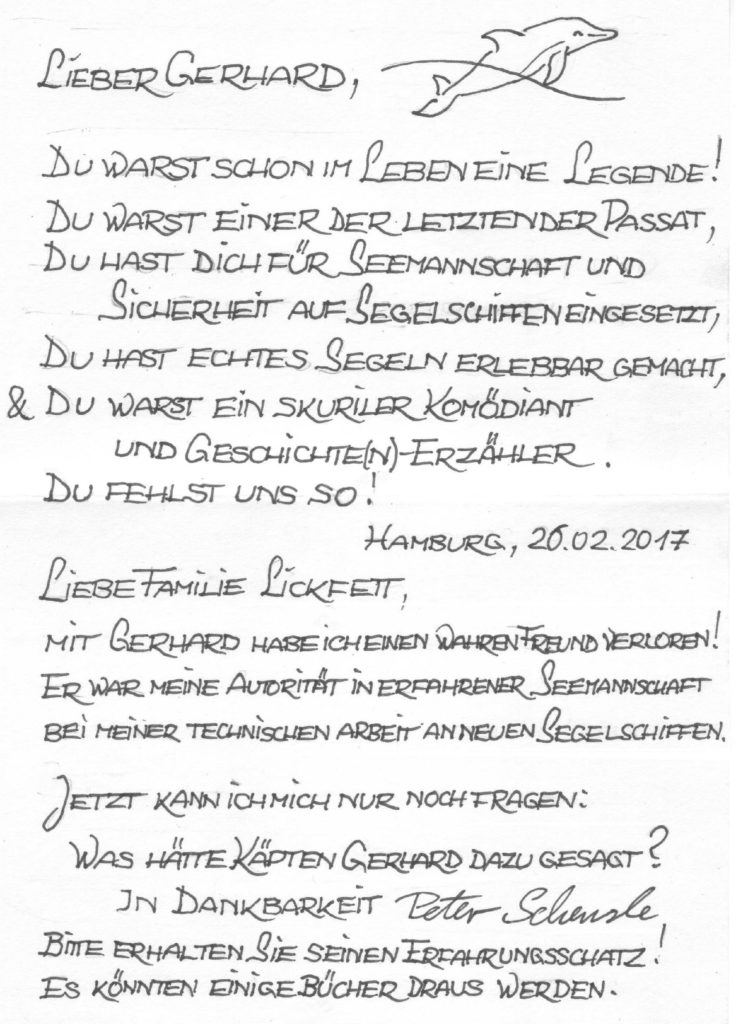 Lieber Gerhard,
Du warst schon im Leben eine Legende!
Du warst einer der letzten der Passat,
Du hast Dich für Seemannschaft und
Sicherheit auf Segelschiffen eingesetzt,
Du hast echtes Segeln erlebbar gemacht,
& Du warst ein skuriler Komödiant
und Geschichte(n)-Erzähler.
Du fehlst uns so!
Hamburg, 26.02.2017
Liebe Familie Lickfett,
mit Gerhard habe ich einen wahren Freund verloren!
Er war meine Autorität in erfahrener Seemannschaft
bei meiner technischen Arbeit an neuen Segelschiffen.
Jetzt kann ich mich nur noch fragen:
Was hätte Käpten Gerhard dazu gesagt?
In Dankbarkeit Peter
Bitte erhalten Sie seinen Erfahrungsschatz!
Es könnten einige Bücher draus werden.